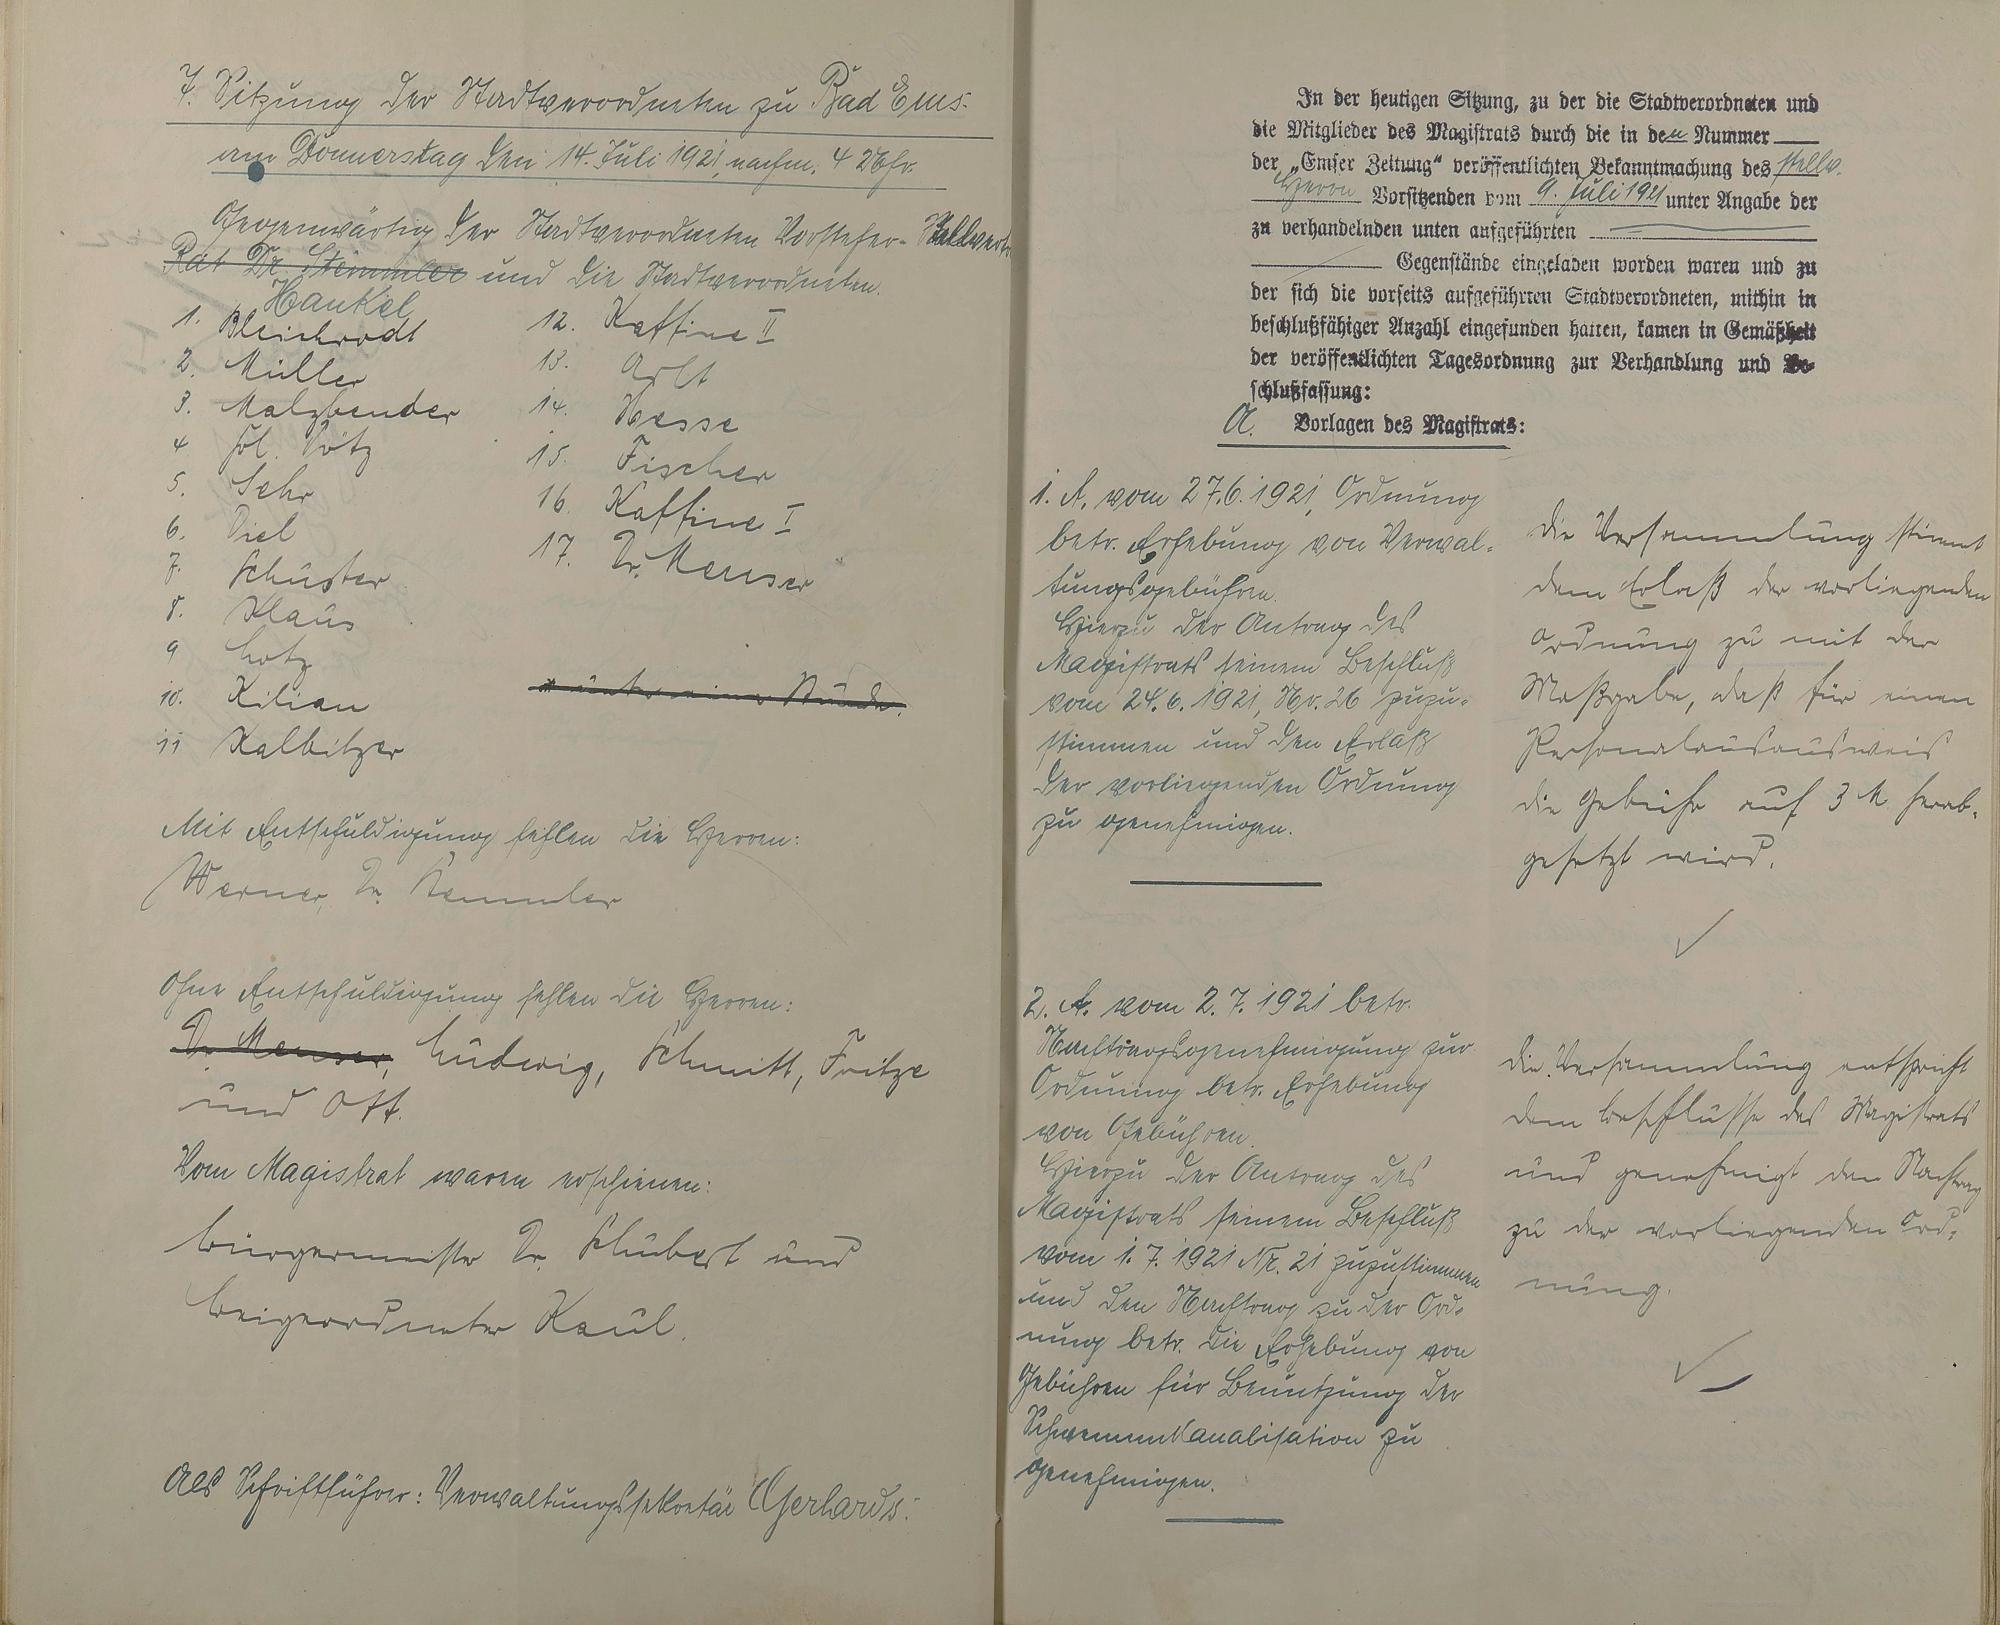 7. Sitzung der Stadtverordneten zu Bad Ems.
am Donnerstag den 14. Juli 1921, nachm. 4 Uhr.
Gegenwärtig der Stadtverordneten Vorsteher-Stellvertr.
Rat Dr. Stemmler und die Stadtverordneten.
Hankel
1. Bleichrodt
2. Müller
3. Malzbender
4 Frl. Götz
5. Sehr
6. Diel
7. Schuster
8. Klaus
9 Lotz
10. Kilian
11 Kalbitzer
12. Kaffine II
13. Arlt
14. Hesse
15. Fischer
16. Kaffine I
17. Dr. Meuser
Mit Entschuldigung fehlen die Herren:
Werner, Dr. Stemmler
Ohne Entschuldigung fehlen die Herren:
Dr. Meuser, Ludwig, Schmitt, Fritze
und Ott.
Vom Magistrat waren erschienen:
Bürgermeister Dr. Schubert und
Beigeordneter Kaul.
Als Schriftführer: Verwaltungssekretär Gerhards.
In der heutigen Sitzung, zu der die Stadtverordneten und
die Mitglieder des Magistrats durch die in den Nummer
der „Emser Zeitung“ veröffentlichten Bekanntmachung des stellv.
Herrn Vorsitzenden vom 9. Juli 1921 unter Angabe der
zu verhandelnden unten aufgeführten
Gegenstände eingeladen worden waren und zu
der sich die vorseits aufgeführten Stadtverordneten, mithin in
beschlußfähiger Anzahl eingefunden hatten, kamen in Gemäßheit
der veröffentlichten Tagesordnung zur Verhandlung und Be-
schlußfassung:
A. Vorlagen des Magistrats:
1. A. vom 27.6.1921, Ordnung
betr. Erhebung von Verwal-
tungsgebühren.
Hierzu der Antrag des
Magistrats seinem Beschluß
vom 24.6.1921, Nr. 26 zuzu-
stimmen und den Erlaß
der vorliegenden Ordnung
zu genehmigen.
Die Versammlung stimmt
dem Erlaß der vorliegenden
Ordnung zu mit der
Maßgabe, daß für einen
Personalausausweis
die Gebühr auf 3 M. herab-
gesetzt wird.
2. A. vom 2.7.1921 betr.
Nachtragsgenehmigung zur
Ordnung betr. Erhebung
von Gebühren.
Hierzu der Antrag des
Magistrats seinem Beschluß
vom 1.7.1921 Nr. 21 zuzustimmen
und den Nachtrag zu der Ord-
nung betr. die Erhebung von
Gebühren für Benutzung der
Schwemmkanalisation zu
genehmigen.
Die Versammlung entspricht
dem Beschlusse des Magistrats
und genehmigt den Nachtrag
zu der vorliegenden Ord-
nung.